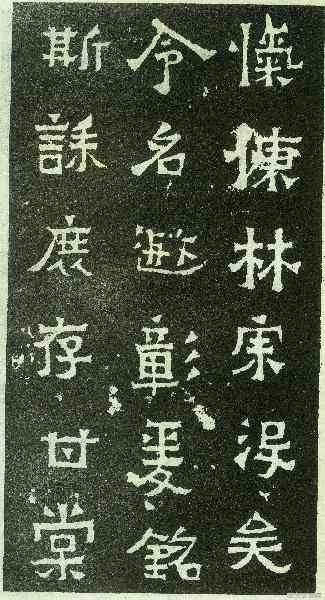 愾慷林宗没矣
令名遐彰爰銘
斯誄庶存甘棠